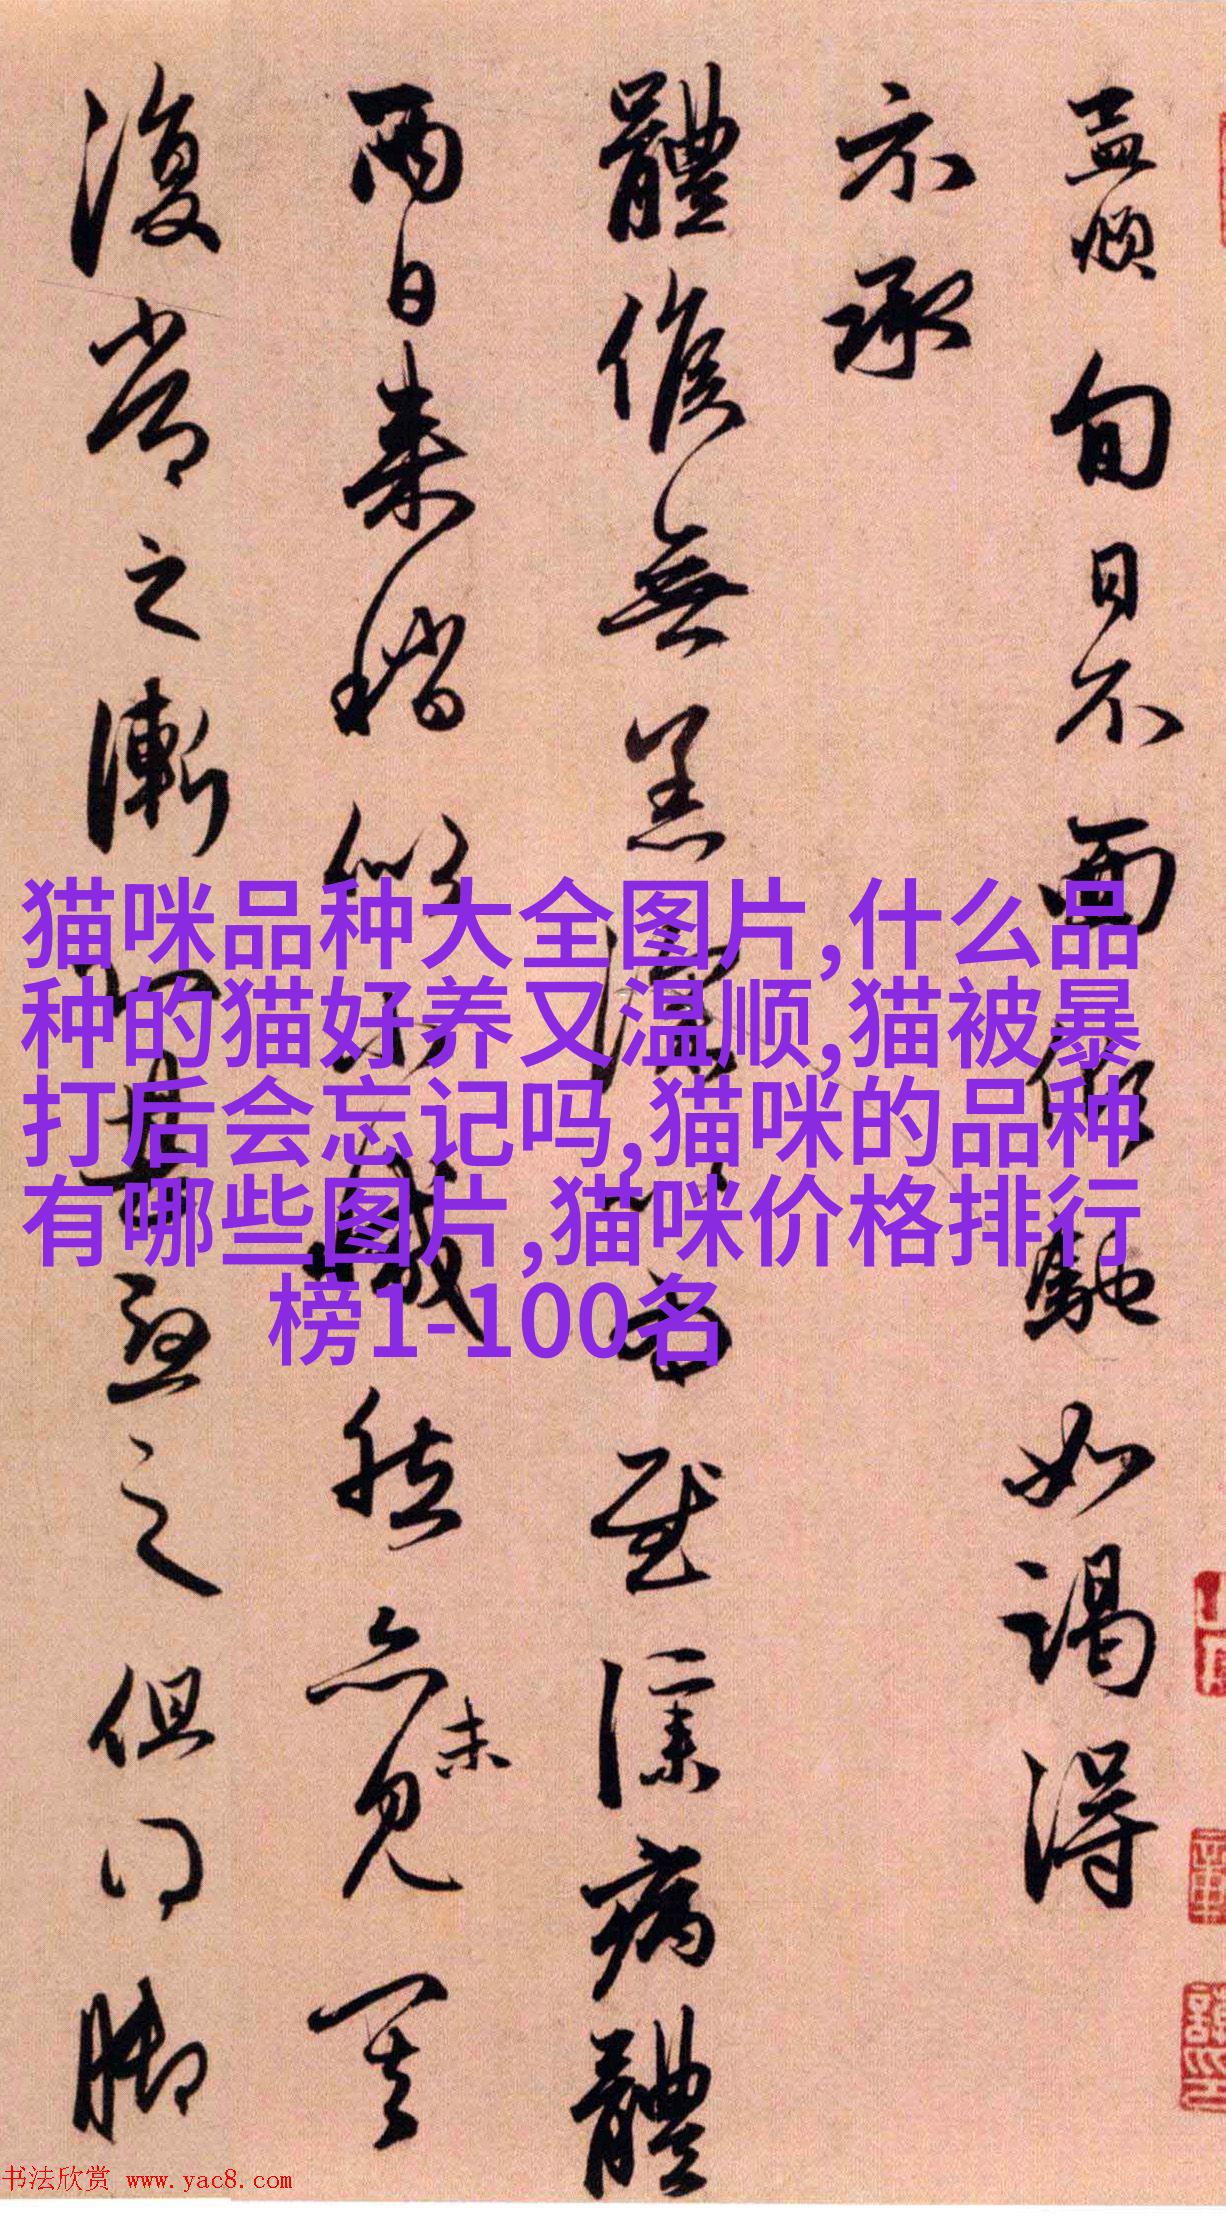 孟頫 旬日不面馳如渴得
示承
體候無恙深慰僕病體
兩日來稍似減然亦未見其
復常之漸之但脚
猫咪品种大全图片,什么品
种的猫好养又温顺,猫被暴
打后会忘记吗,猫咪的品种
有哪些图片,猫咪价格排行
榜1-100名
书法欣赏 www.yac8.com